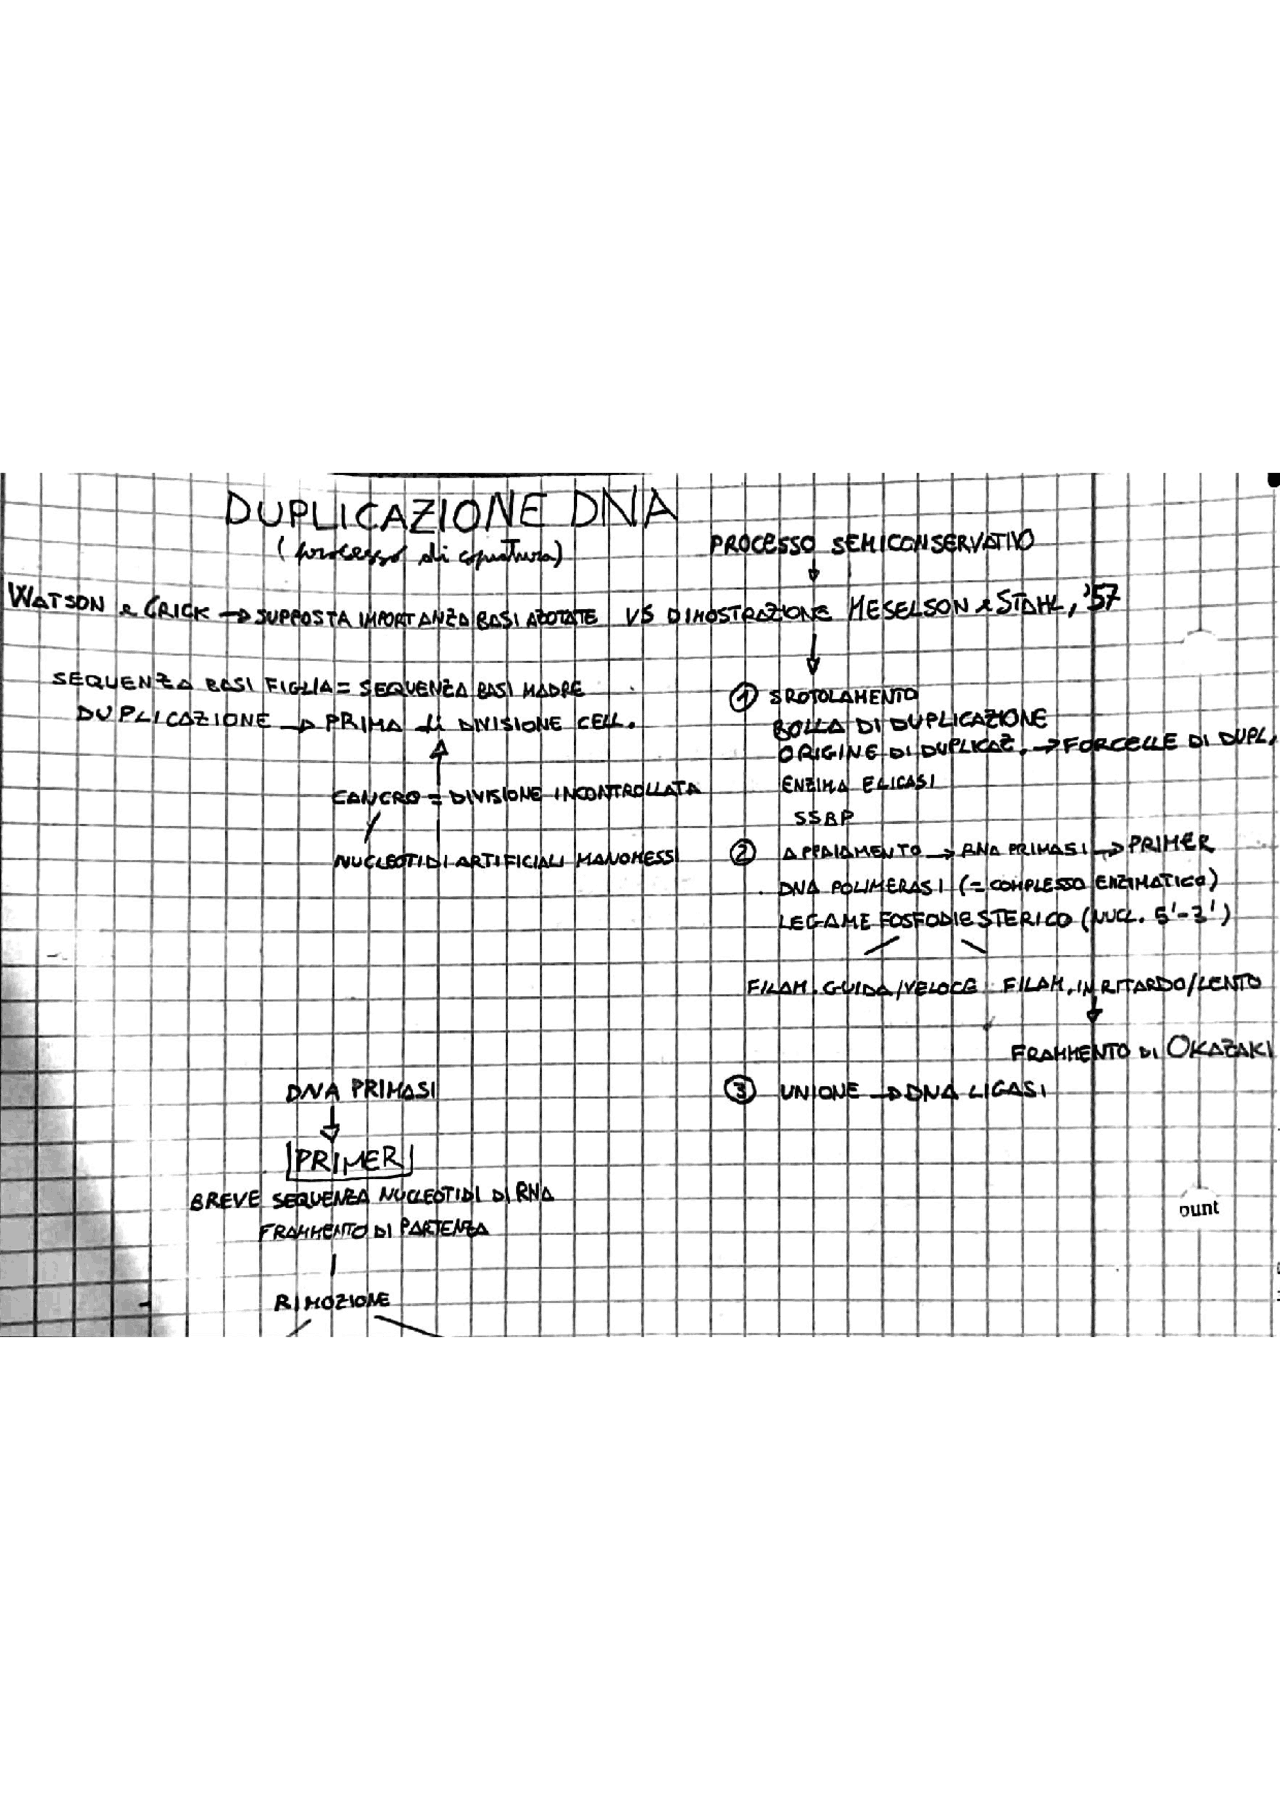 DUPLICAZIONE DNA
(processo di copiatura)
PROCESSO SEMICONSERVATIVO
WATSON e CRICK → SUPPOSTA IMPORTANZA BASI AZOTATE VS DIMOSTRAZIONE MESELSON e STAHL, '57
SEQUENZA BASI FIGLIA = SEQUENZA BASI MADRE
DUPLICAZIONE → PRIMA di DIVISIONE CELL.
CANCRO = DIVISIONE INCONTROLLATA
NUCLEOTIDI ARTIFICIALI MANOMESSI
① SROTOLAMENTO
BOLLA DI DUPLICAZIONE
ORIGINE DI DUPLICAZ. → FORCELLE DI DUPL.
ENZIMA ELICASI
SSBP
② APPAIAMENTO → RNA PRIMASI → PRIMER
DNA POLIMERASI (= COMPLESSO ENZIMATICO)
LEGAME FOSFODIESTERICO (NUCL. 5'-3')
FILAM. GUIDA/VELOCE FILAM. IN RITARDO/LENTO
FRAMMENTO DI OKAZAKI
③ UNIONE → DNA LIGASI
DNA PRIMASI
PRIMER
BREVE SEQUENZA NUCLEOTIDI DI RNA
FRAMMENTO DI PARTENZA
RIMOZIONE
ount